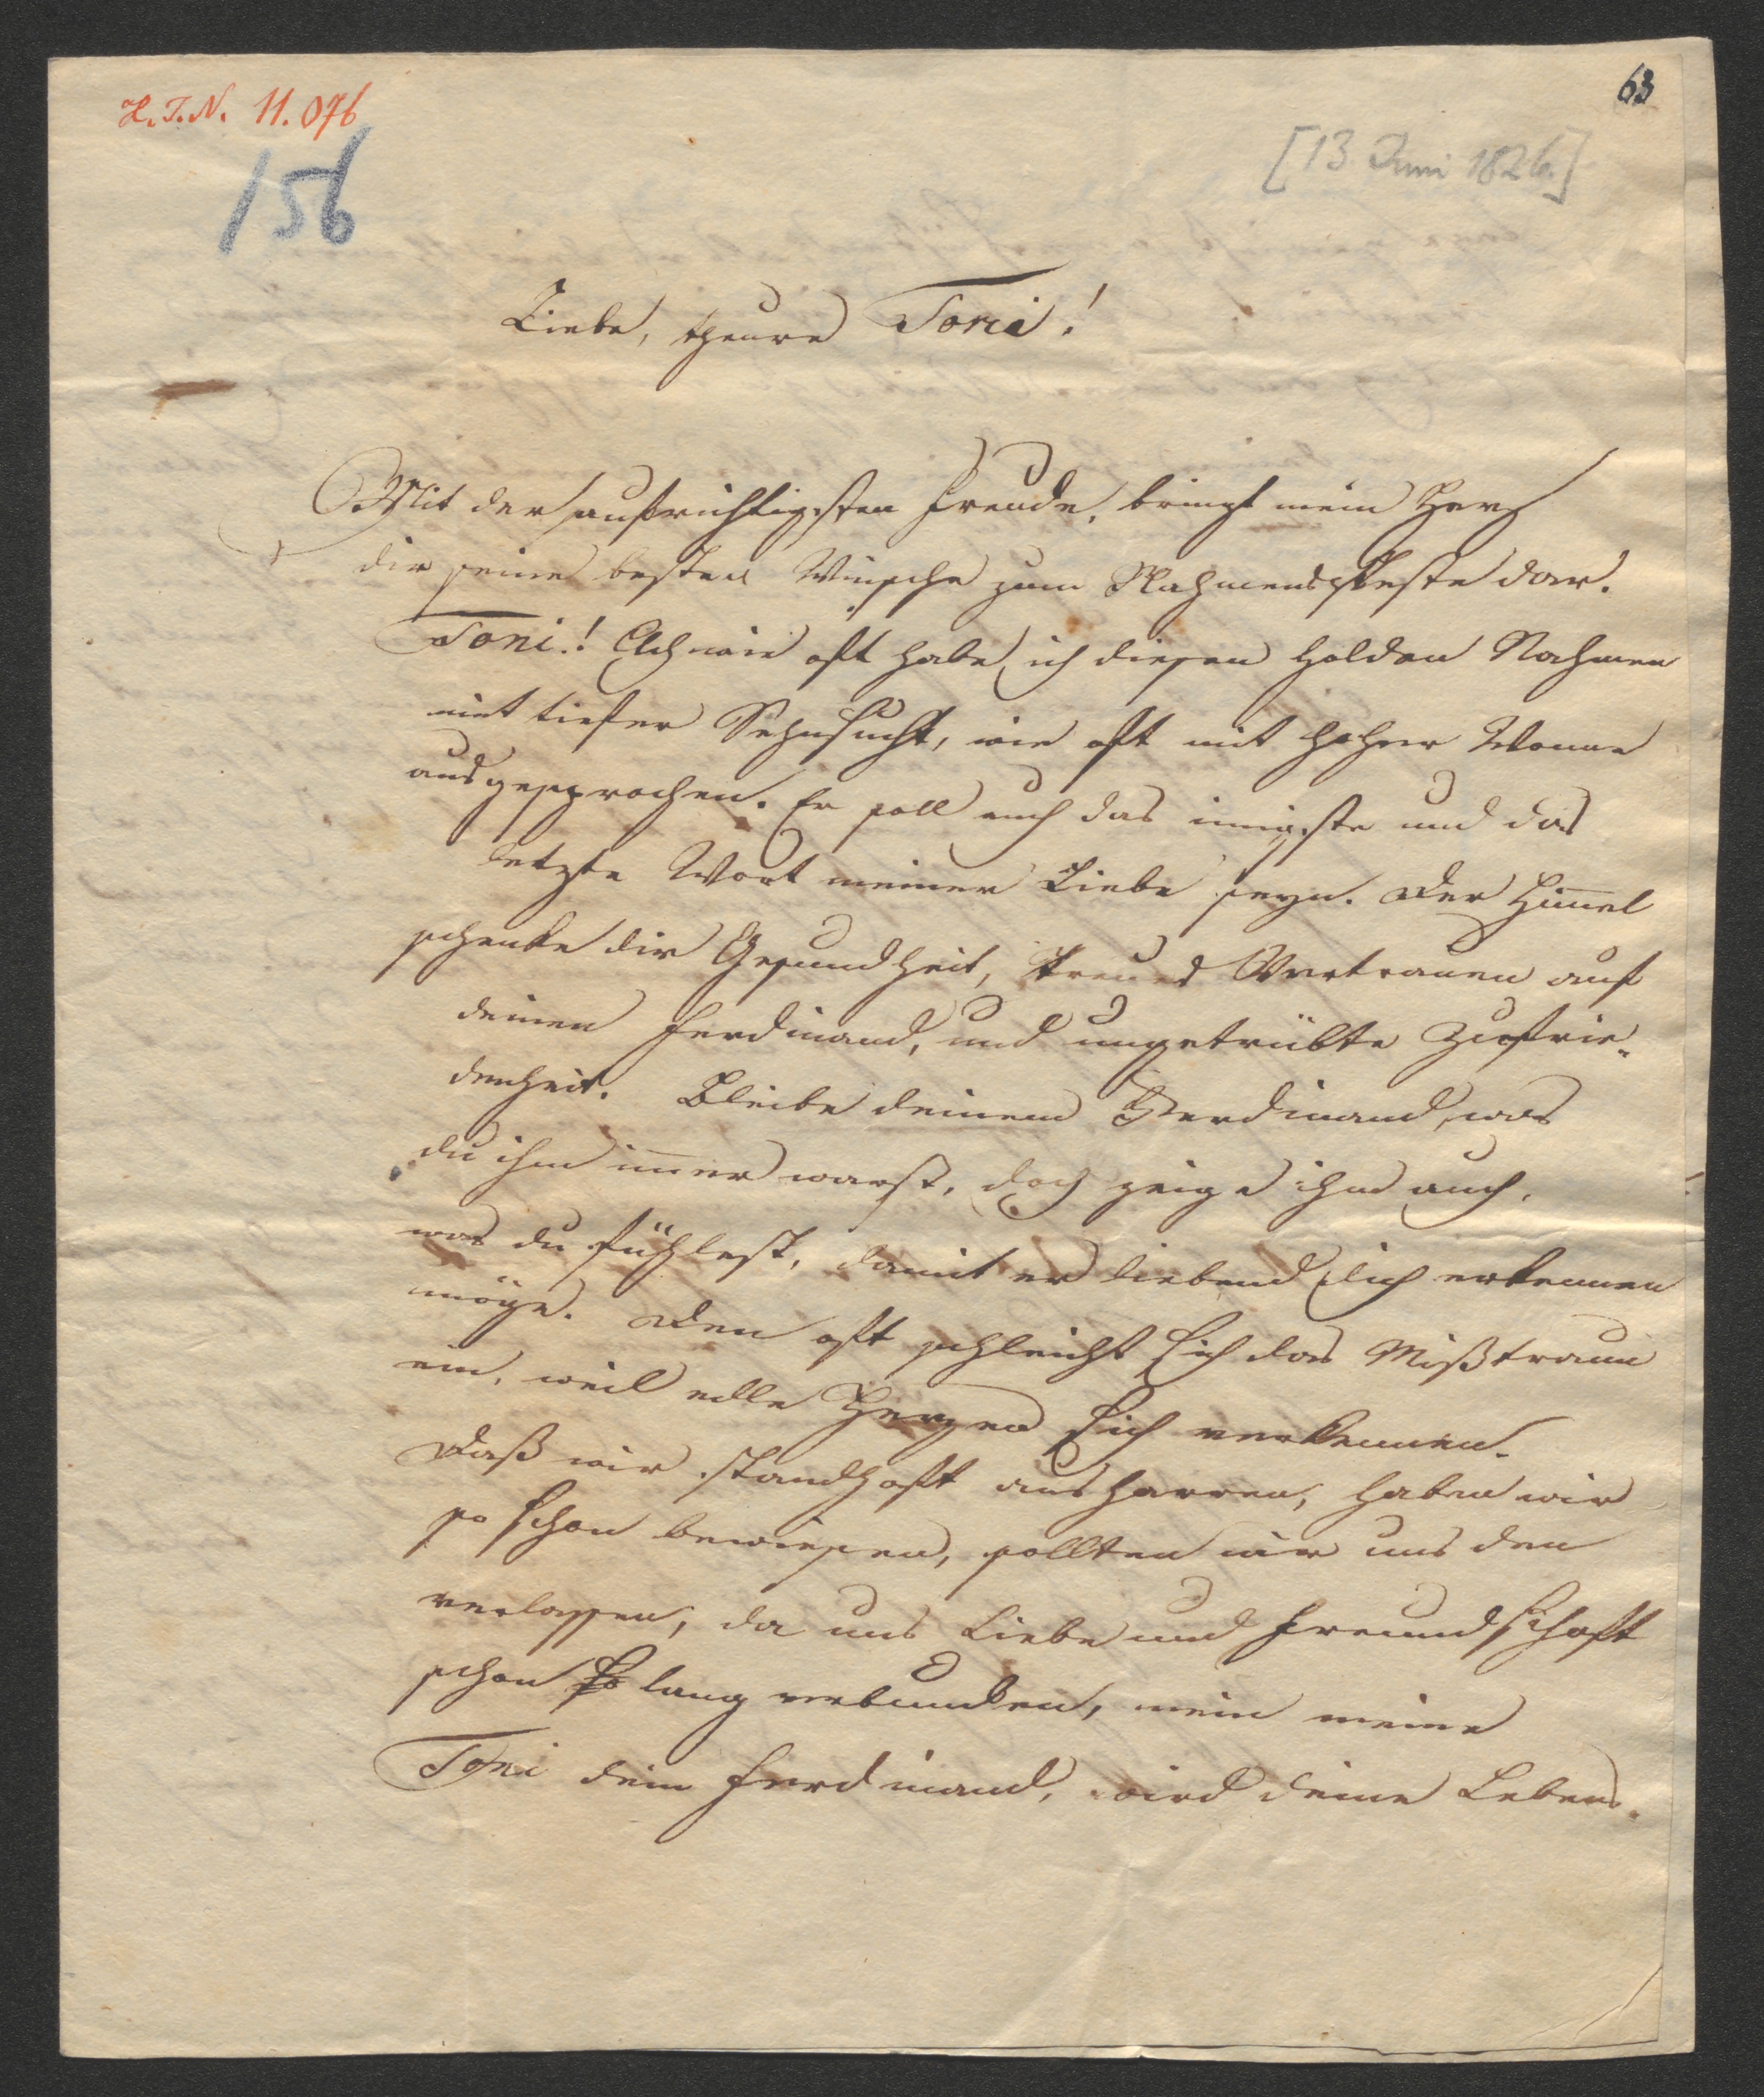 63
H. I. N. 11.076
[13 Juni 1826.]
156
Liebe, theure Toni!
Mit der aufrichtigsten Freude, bringt mein Herz
dir seine besten Wünsche zum Nahmensfeste dar.
Toni! Ach wie oft habe ich diesen holden Nahmen
mit tiefer Sehnsucht, wie oft mit hoher Wonne
ausgesprochen. Er soll auch das innigste und das
letzte Wort meiner Liebe seyn. Der Him̅el
schenke dir Gesundheit, treues Vertrauen auf
deinen Ferdinand, und ungetrübte Zufrie=
denheit. Bleibe deinem Ferdinand, was
du ihm im̅er warst, doch zeige ihm auch,
was du fühlest, damit er liebend dich erkennen
möge. Den oft schleicht sich das Mißtraun
ein, weil edle Herzen sich verkennen.
Daß wir standhaft ausharren, haben wir
so schon bewiesen, sollten wir uns den
verlassen, da uns Liebe und Freundschaft
schon so lang verbunden, nein meine
Toni dein Ferdinand, wird deine Lebens=